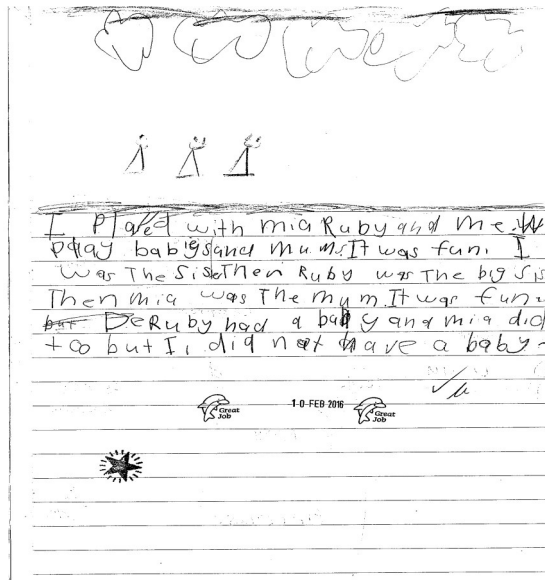 I Plared with mia Ruby and me. W
Play babys and mums. It was fun. I
was The sis Then Ruby was The big sis
Then mia was The mum. It was fun
but De Ruby had a baby and mia did
too but I, did not have a baby
Great Job
10 FEB 2016
Great Job